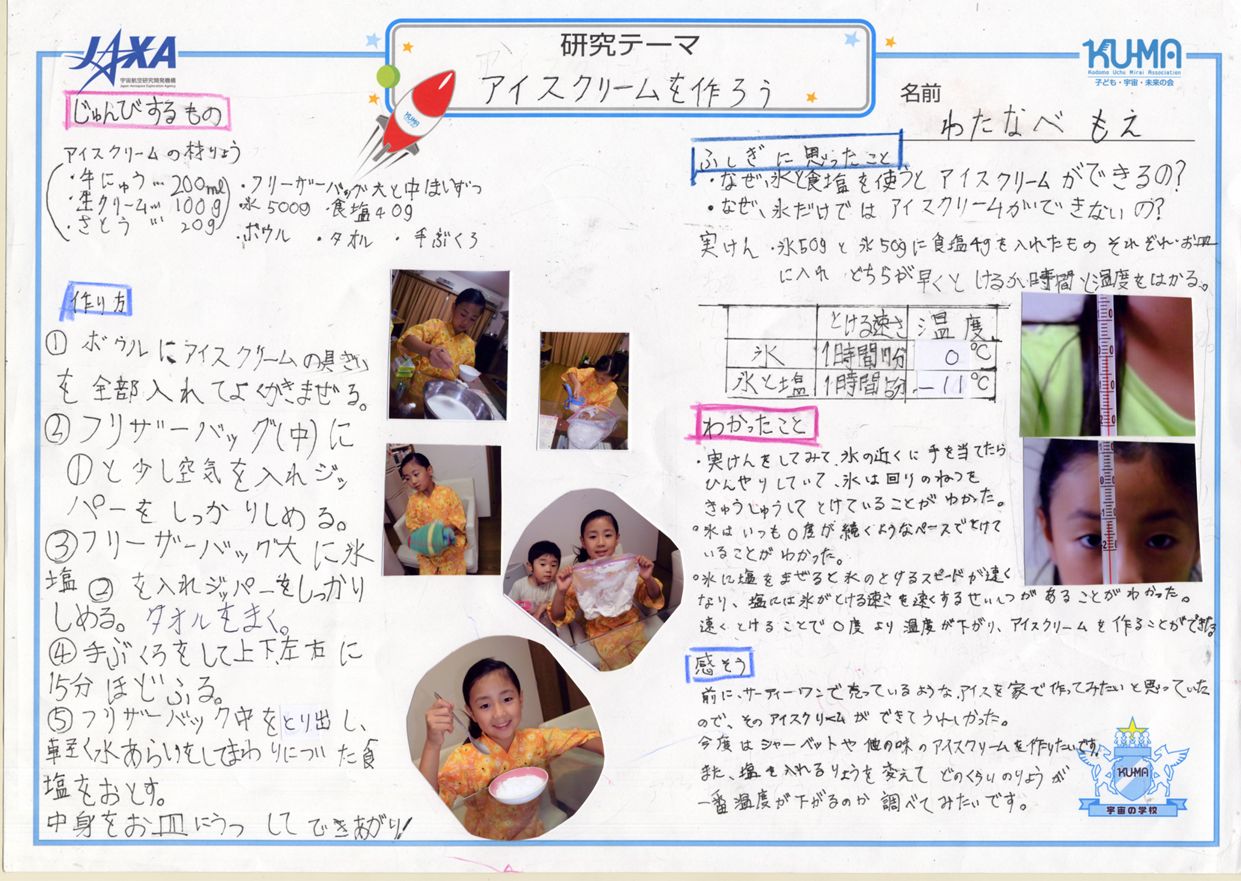 JAXA
宇宙航空研究開発機構
Japan Aerospace Exploration Agency
研究テーマ
アイスクリームを作ろう
KU-MA
Kodomo Uchu Mirai Association
子ども・宇宙・未来の会
名前
わたなべ もえ
じゅんびするもの
アイスクリームの材りょう
・牛にゅう… 200ml
・生クリーム… 100g
・さとう… 20g
・フリーザーバッグ大と中1まいずつ
・氷500g ・食塩40g
・ボウル ・タオル ・手ぶくろ
作り方
① ボウルにアイスクリームの具ざい
を全部入れてよくかきまぜる。
② フリザーバッグ(中)に
①と少し空気を入れジッ
パーをしっかりしめる。
③フリーザーバッグ大に氷
塩②を入れジッパーをしっかり
しめる。タオルをまく。
④手ぶくろをして上下左右に
15分ほどふる。
⑤フリザーバック中をとり出し、
軽く水あらいをしてまわりについた食
塩をおとす。
中身をお皿にうつしてできあがり!
KU-MA
ふしぎに思ったこと
・なぜ、氷と食塩を使うとアイスクリームができるの?
・なぜ、氷だけではアイスクリームができないの?
実けん ・氷50gと氷50gに食塩4gを入れたものそれぞれ・お皿
に入れどちらが早くとけるか時間と温度をはかる。
とける速さ 温度
氷 1時間17分 0℃
氷と塩 1時間5分 -11℃
わかったこと
・実けんをしてみて、氷の近くに手を当てたら
ひんやりしていて、氷は回りのねつを
きゅうしゅうしてとけていることがわかった。
○氷はいつも0度が続くようなペースでとけて
いることがわかった。
○氷に塩をまぜると氷のとけるスピードが速く
なり、塩には氷がとける速さを速くするせいしつがあることがわかった。
速くとけることで0度より温度が下がり、アイスクリームを作ることができた。
感そう
前に、サーティーワンで売っているような、アイスを家で作ってみたいと思っていた
ので、そのアイスクリームができてうれしかった。
今度はシャーベットや他の味のアイスクリームを作りたいです。
また、塩を入れるりょうを変えてどのくらいのりょうが
一番温度が下がるのか調べてみたいです。
KU-MA
宇宙の学校